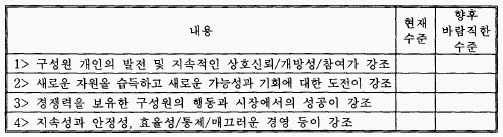 내용 현재 수준 향후 바람직한 수준
1> 구성원 개인의 발전 및 지속적인 상호신뢰/개방성/참여가 강조
2> 새로운 자원을 습득하고 새로운 가능성과 기회에 대한 도전이 강조
3> 경쟁력을 보유한 구성원의 행동과 시장에서의 성공이 강조
4> 지속성과 안정성, 효율성/통제/매끄러운 경영 등이 강조